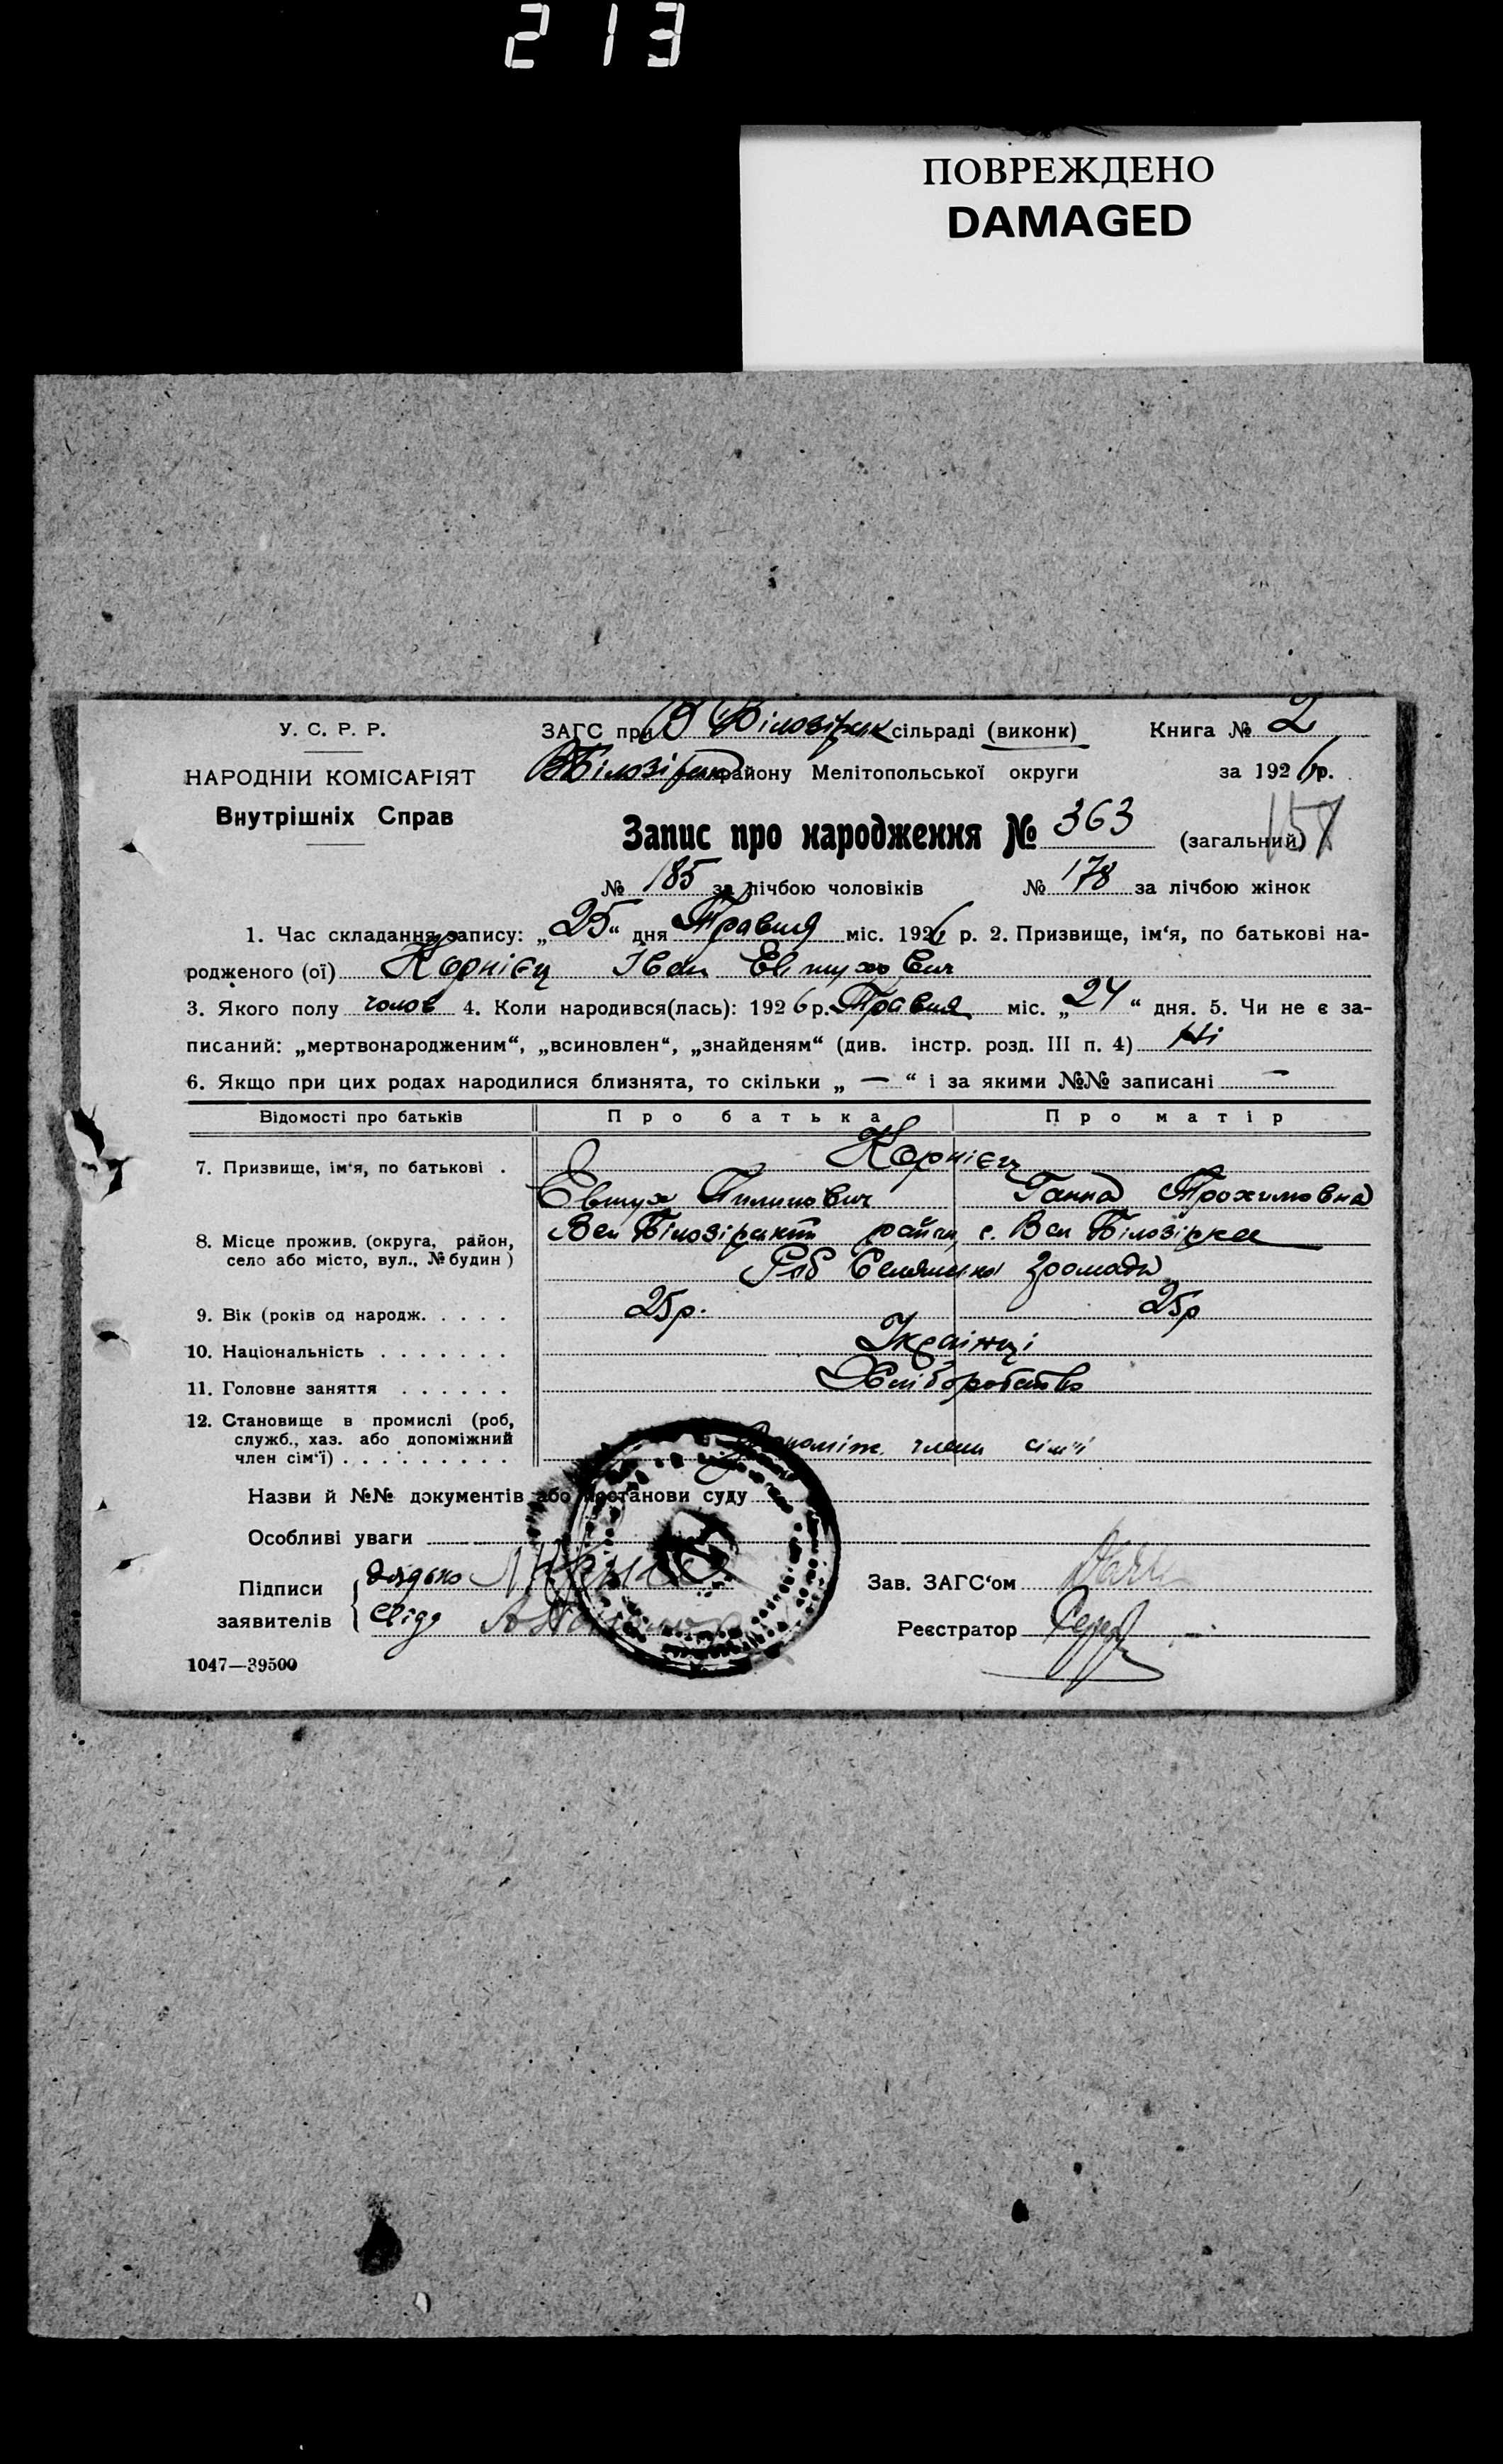 213
ПОВРЕЖДЕНО
DAMAGED
У. С. Р. Р.
НАРОДНІЙ КОМІСАРІЯТ
Внутрішніх Справ
ЗАГС при В Білозірск сільраді (виконк)
ВБілозірськ району Мелітопольської округи
Книга № 2
за 1926 р.
Запис про народження № 363 (загальний)
157
№ 185 за лічбою чоловіків № 178 за лічбою жінок
1. Час складання запису: „25“ дня Травня міс. 1926 р. 2. Призвище, ім‘я, по батькові на-
родженого (ої) Корнієц Іван Евтухович
3. Якого полу чолов 4. Коли народився(лась): 1926 р. Травня міс. „24“ дня. 5. Чи не є за-
писаний: „мертвонародженим“, „всиновлен“, „знайденям“ (див. інстр. розд. III п. 4) Ні
6. Якщо при цих родах народилися близнята, то скільки „ — “ і за якими №№ записані —
Відомості про батьків Про батька Про матір
7. Призвище, ім‘я, по батькові . Корнієц
Евтух Пилипович Ганна Трохимовна
8. Місце прожив. (округа, район,
село або місто, вул., № будин)
Вел Білозірськ район, с. Вел Білозірка
Селянська громада
9. Вік (років од народж. . . . . 25р. 25р
10. Національність . . . . . . . Українці
11. Головне заняття . . . . . . Хліборобство
12. Становище в промислі (роб,
служб., хаз. або допоміжний
член сім‘ї) . . . . . . . . . Допоміж. члени сім'ї
Назви й №№ документів або постанови суду
Особливі уваги
Підписи
заявителів
дядько
Свідд
Зав. ЗАГС‘ом
Реєстратор
1047—39500